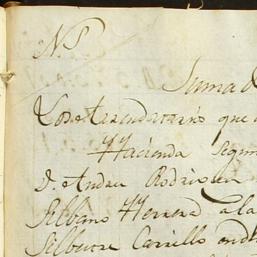 N. S
Suma d
Los Arrendatario que
Hacienda Segun
D. Andres Rodrigues
Silbano Herrera a la
Silbestre Carrillo en